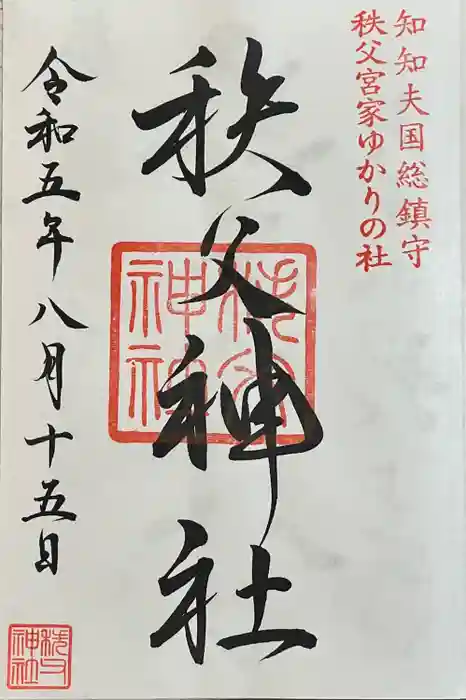 知知夫国総鎮守
秩父宮家ゆかりの社
秩父神社
令和五年八月十五日
秩父
神社